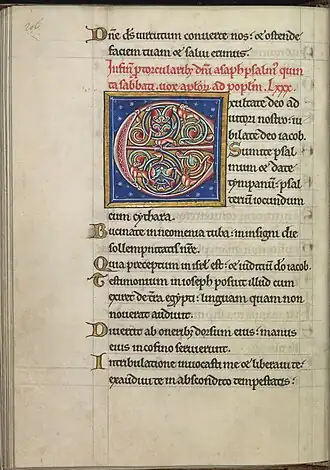 Dñe ds̃ uirtutum conuerte nos: et ostende
faciem tuam et salui erimus.
In finẽ p torcularibȝ dñi asaph psalmꝰ quin
ta sabbati. uox aptoꝝ ad popłm. Lxxx.
Exultate deo ad
iutori nostro: iu
bilate deo iacob.
Sumite psal
mum et date
tympanũ: psal
terium iocundum
cum cythara.
Bucinate in neomenia tuba: in insigni die
sollempnitatis ur̃e.
Quia preceptum in isrł est: et iudiciũ dõ iacob.
Testimonium in ioseph posuit illud cum
exiret de tr̃a egypti: linguam quam non
nouerat audiuit.
Diuertit ab oneribȝ dorsum eius: manus
eius in cofino seruierunt.
In tribulatione inuocasti me et liberaui te:
exaudiui te in abscondito tempestatis: